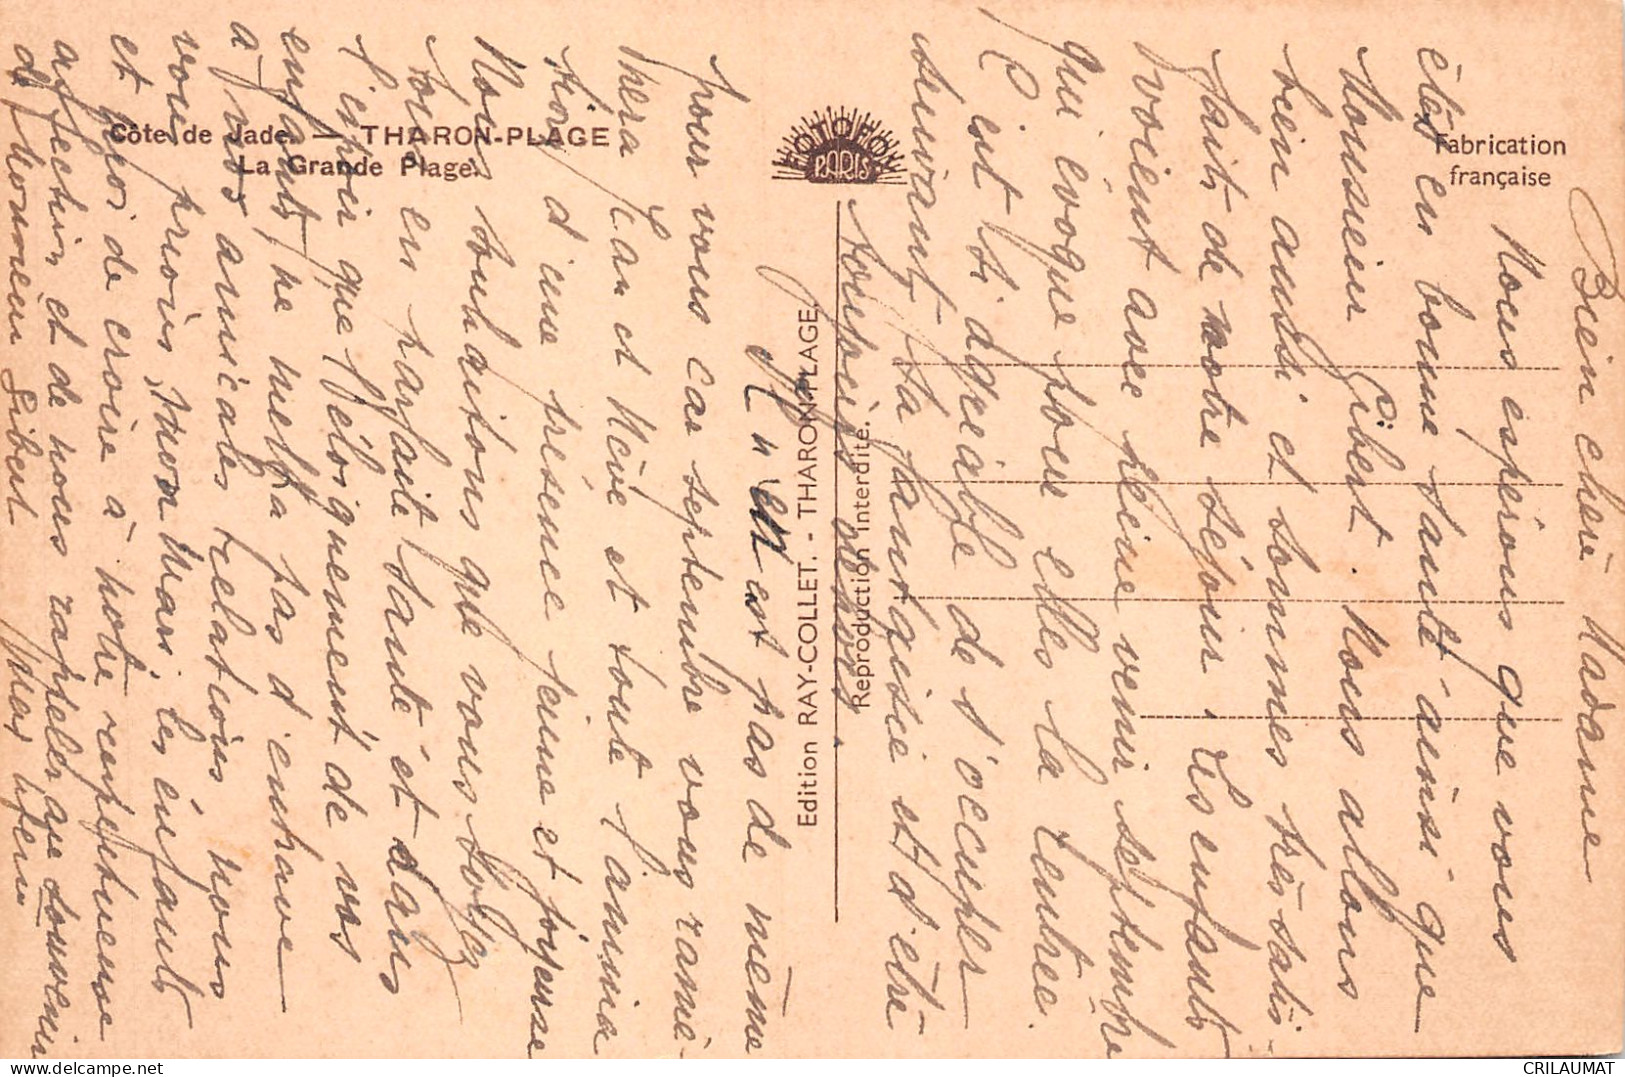 Côte de Jade — THARON-PLAGE
La Grande Plage.
PHOTOFOX
PARIS
Fabrication
française
Edition RAY-COLLET. - THARON-PLAGE.
Reproduction interdite.
Bien chère Madame
Nous espérons que vous
êtes en bonne santé ainsi que
Monsieur Gibert. Nous allons
bien aussi et sommes très satis-
faits de notre séjour. Les enfants
voient avec peine venir septembre
qui évoque pour elles la rentrée.
C'est si agréable de s'occuper
suivant sa fantaisie et d'être
toujours dehors.
Il n'en est pas de même
pour vous car septembre vous ramè-
nera et toute l'anima
tion d'une présence jeune et joyeuse
Nous souhaitons que vous soyez
tous en parfaite santé et dans
l'espoir que l'éloignement de vos
enfants ne mettra pas d'entrave
à nos amicales relations nous
vous prions, mon Mari, les enfants
et moi de croire à notre respectueuse
affection et de nous rappeler au souvenir
de Monsieur Gibert